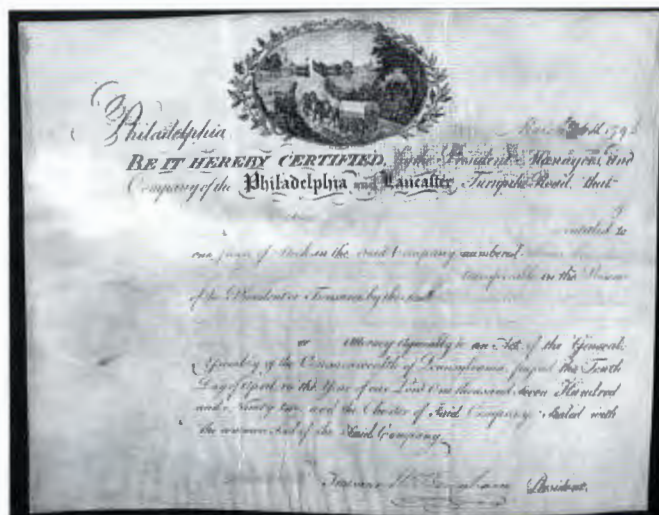 Philadelphia, March 179
BE IT HEREBY CERTIFIED, by the President, Managers, and
Company of the Philadelphia and Lancaster Turnpike Road, that
entitled to
one share of Stock in the said Company number
transferable in the Presence
of the President or Treasurer by the said
or Attorney agreeably to an Act of the General
Assembly of the Commonwealth of Pennsylvania, passed the Tenth
Day of April in the Year of our Lord One thousand seven Hundred
and Ninety two, and the Charter of said Company. Sealed with
the common Seal of the Said Company
President.